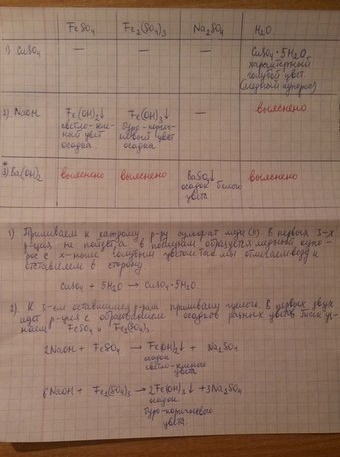 FeSO₄ Fe₂(SO₄)₃ Na₂SO₄ H₂O
1) CuSO₄ — — — CuSO₄·5H₂O
характерный
голубой цвет
(медный купорос)
2) NaOH Fe(OH)₂↓ Fe(OH)₃↓ — вылснено
светло-зеле-
ный цвет
осадка
буро-корич-
невый цвет
осадка
3) Ba(OH)₂ вылснено вылснено BaSO₄↓ вылснено
осадок белого
цвета
1) Приливаем к каждому р-ру сульфат меди (II). В первых 3-х
р-ция не пойдет, а в последнем образуется медный купо-
рос с голубым цветом так мы воду и
отставляем в сторону
CuSO₄ + 5H₂O → CuSO₄·5H₂O
2) К 3-ем оставшимся р-рам приливаем щелочь. В первых двух
идет р-ция с образованием осадков разных цветов
FeSO₄ и Fe₂(SO₄)₃
2NaOH + FeSO₄ → Fe(OH)₂↓ + Na₂SO₄
осадок
светло-зеленого
цвета
6NaOH + Fe₂(SO₄)₃ → 2Fe(OH)₃↓ + 3Na₂SO₄
осадок
буро-коричневого
цвета